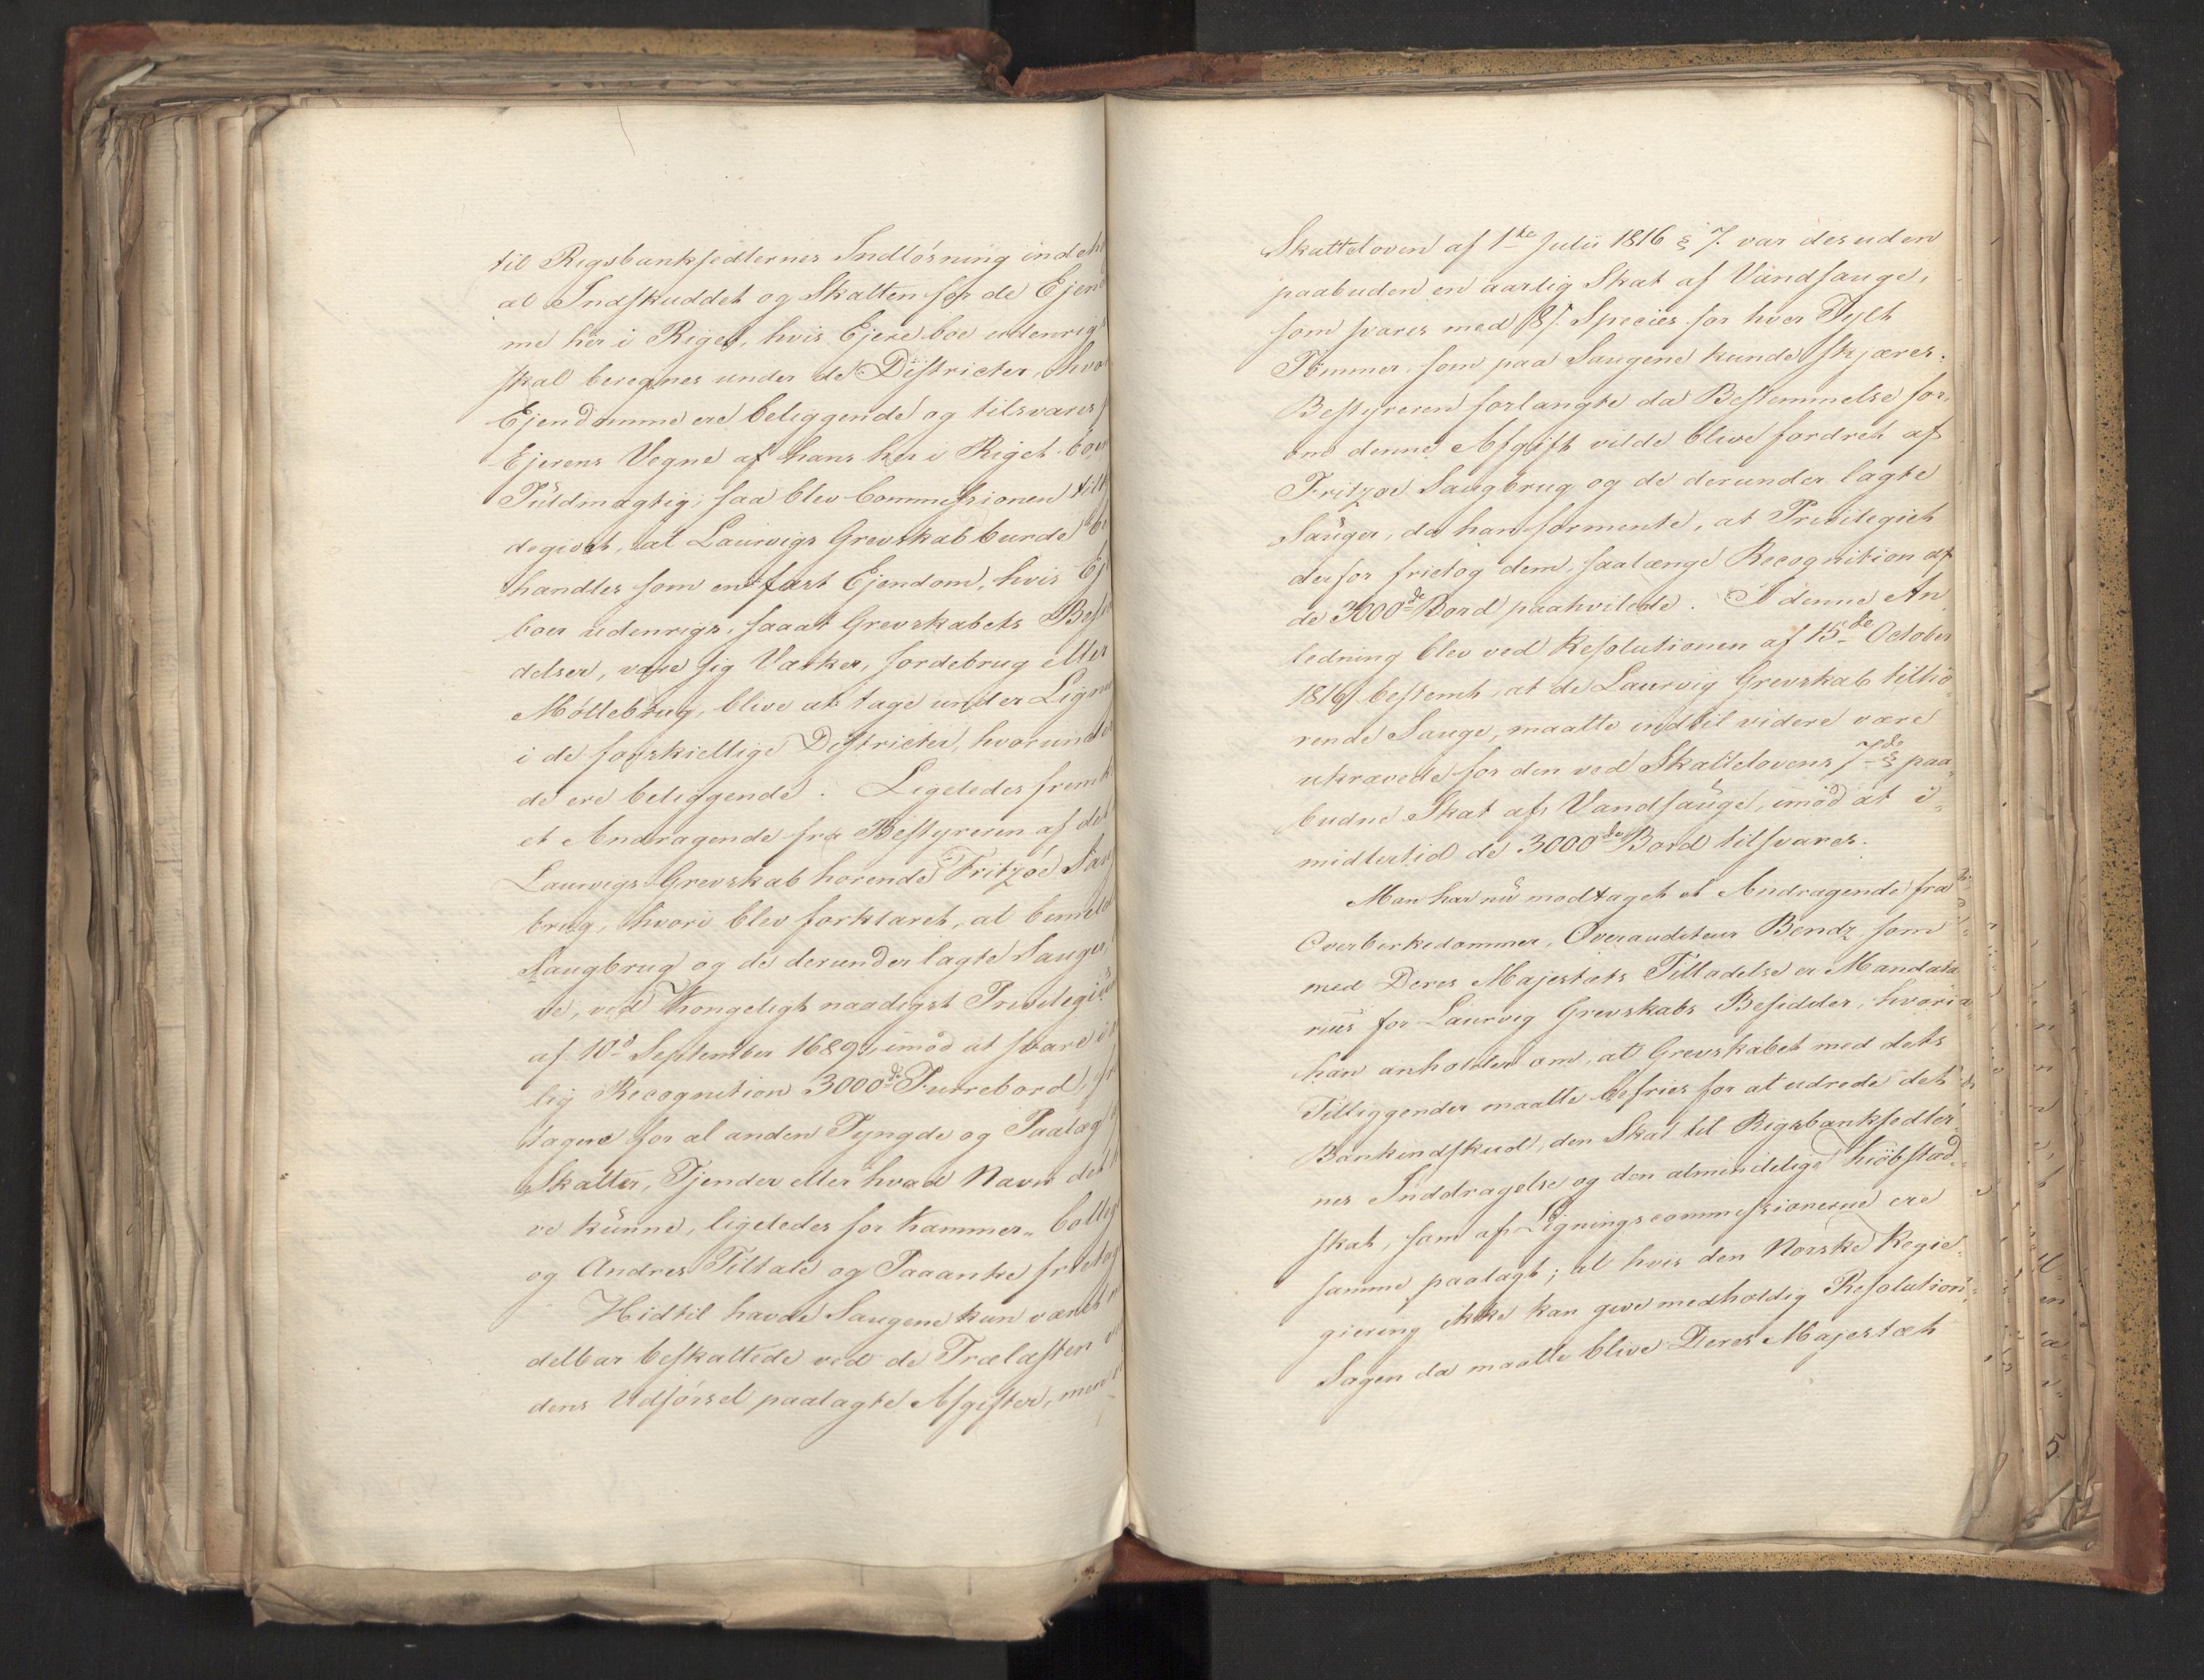 til Rigsbanksedlernes Indlösning indeh
at Indskuddet og Skatten for de Ejen
me her i Riget, hvis Ejere boe udenrigs
skal beregnes under de Districter, hvo
Ejendomme ere beliggende og tilsvares
Ejerens Vegne af hans her i Riget boe
Fuldmægtig; saa blev Commissionen tilk
degivet, at Laurvigs Grevskab burde be
handles som en fast Ejendom, hvis Ej
boer udenrigs, saaat Grevskabets Besi
delser, være sig Værker, Jordebrug eller
Möllebrug, blive at tage under Ligni
i de forskiellige Districter, hvorunde
de ere beliggende. Ligeledes fremk
et Andragende fra Bestyreren af det
Laurvigs Grevskab hörende Fritzöe Sau
brug, hvori blev forklaret, at bemeld
Saugbrug og de derunder lagte Sauger,
ve, ved Kongeligt naadigst Privilegiu
af 10de September 1689, imod at svare
lig Recognition 3000de Furrebord, fri
tagne for al anden Tyngde og Paalæg
Skatter, Tjender eller hvad Navn det
ve kunne, ligeledes for Kammer- Colleg
og Andres Tiltale og Paaanke frietag
Hidtil havde Saugene kun været
delbar beskattede ved de Trælasten
dens Udförsel paalagte Afgifter, men
Skatteloven af 1ste Julii 1816 § 7. var desuden
paabuden en aarlig Skat af Vandsauge,
som svares med 8 s. Species for hver Tylt
Tömmer, som paa Saugene kunde skjæres.
Bestyreren forlangte da Bestemmelse for,
om denne Afgift vilde blive fordret af
Fritzöe Saugbrug og de derunder lagte
Sauger, da han formente, at Privilegiet
derfor frietog dem, saalænge Recognition af
de 3000de Bord paahvilede. I denne An
ledning blev ved Resolutionen af 15de October
1816 bestemt, at de Laurvig Grevskab tilhö-
rende Sauge, maatte indtil videre være
ukrævede for den ved Skattelovens 7de § paa-
budne Skat af Vandsauge, imod at i-
midlertid de 3000de Bord tilsvares.
Man har nu modtaget et Andragende fra
Overbirkedommer, Overauditeur Bendz som
med Deres Majestæts Tilladelse er Mandata
rius for Laurvig Grevskabs Besidder, hvori
han anholder om, at Grevskabet med dets
Tilliggender maatte befries for at udrede det
Bankindskud, den Skat til Rigsbanksedler-
nes Inddragelse og den almindelige Kiöbstad-
skat, som af Ligningscommissionerne ere
samme paalagt; at hvis den Norske Regie-
giering ikke kan give medholdig Resolution,
Sagen da maatte blive Deres Majestæt